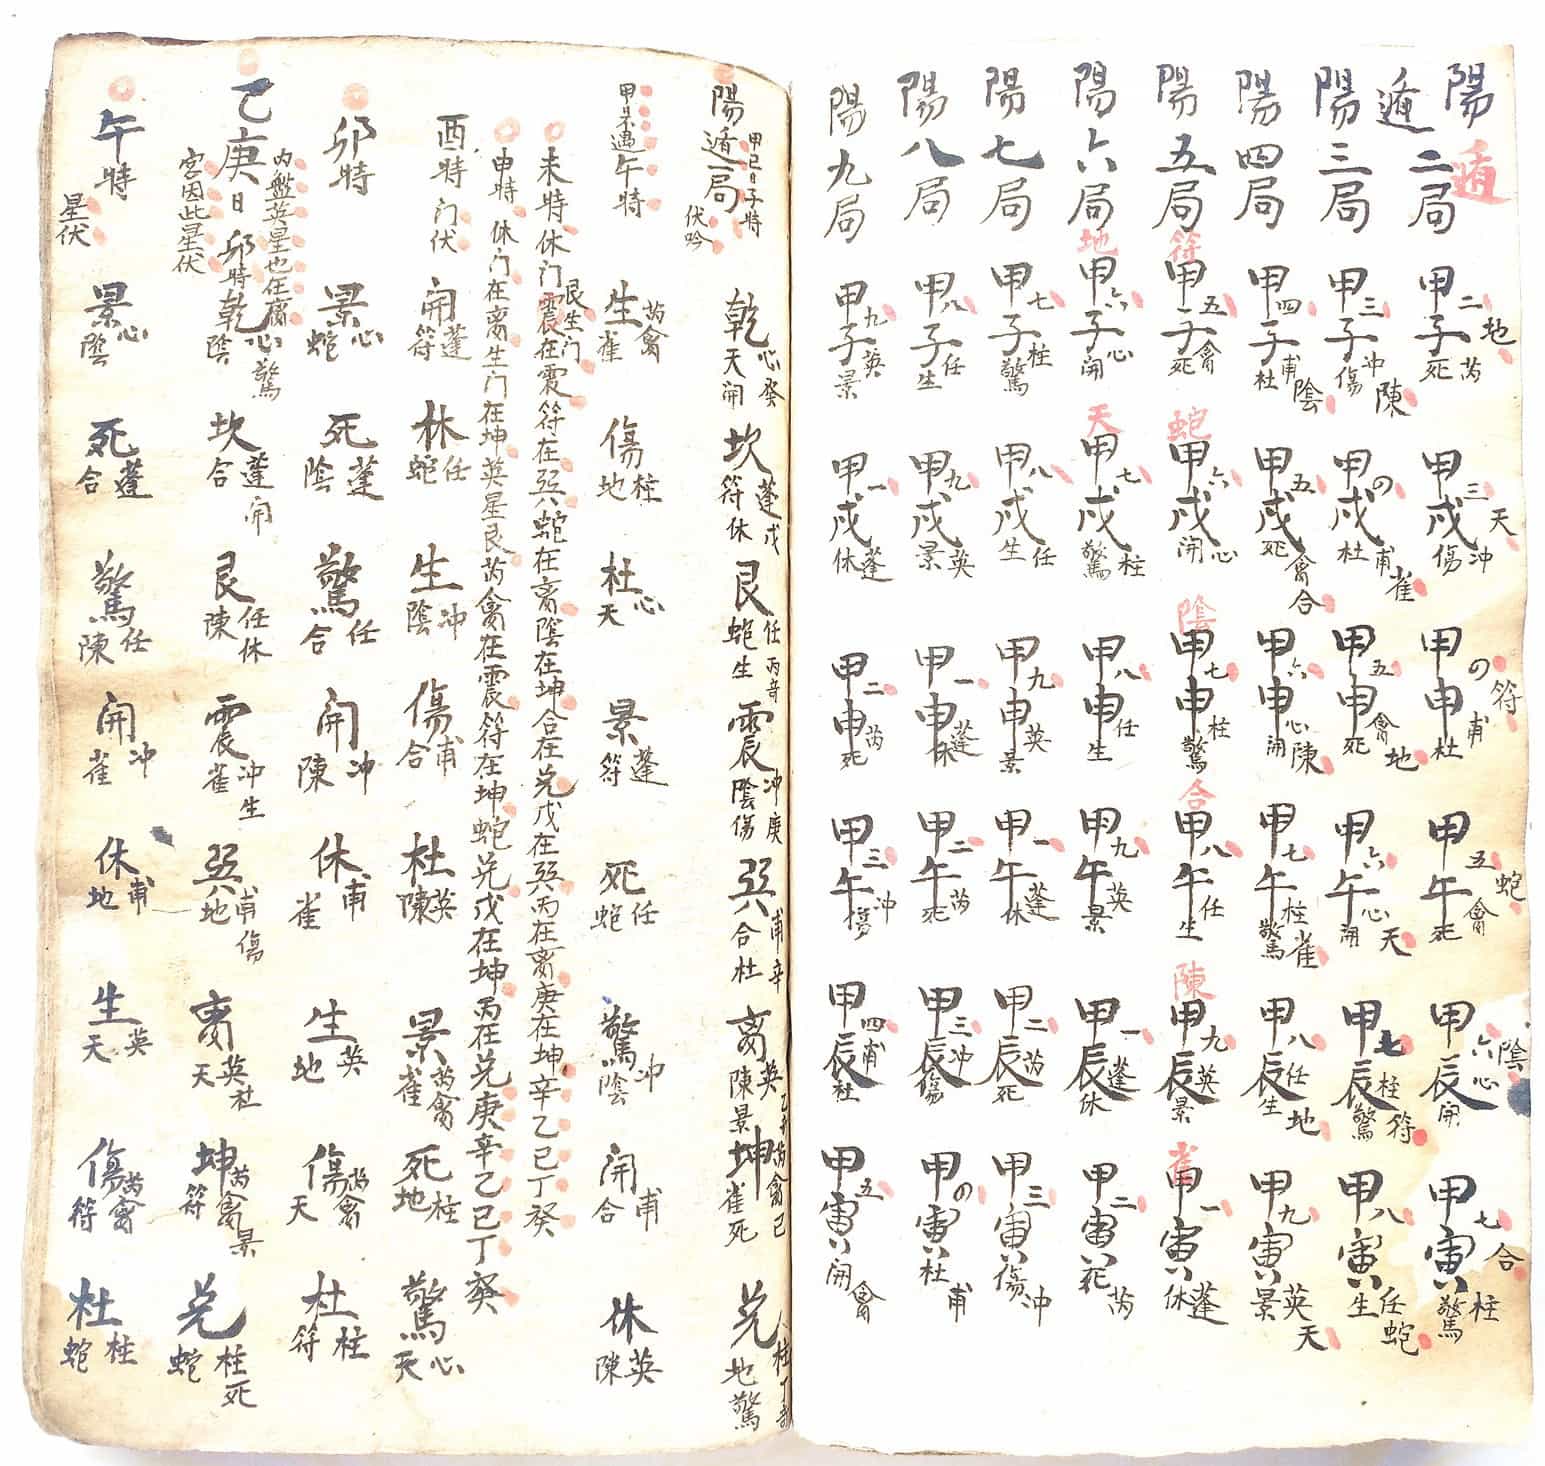 陽遁二局 甲子二地死芮 甲戌三天傷冲 甲申の符杜甫 甲午五蛇死禽 甲辰六陰開心 甲寅七合驚柱
遁
陽遁三局 甲子三傷冲陳 甲戌の杜甫雀 甲申五死禽地 甲午六開心天 甲辰七驚柱符 甲寅八生任蛇
陽四局 甲子四杜甫陰 甲戌五死禽合 甲申六開心陳 甲午七驚柱雀 甲辰八生任地 甲寅九景英天
陽五局 符甲子五死禽 蛇甲戌六開心 陰甲申七驚柱 合甲午八生任 陳甲辰九景英 雀甲寅一休蓬
陽六局 地甲子六開心 天甲戌七驚柱 甲申八生任 甲午九景英 甲辰一休蓬 甲寅二死芮
陽七局 甲子七驚柱 甲戌八生任 甲申九景英 甲午一休蓬 甲辰二死芮 甲寅三傷冲
陽八局 甲子八生任 甲戌九景英 甲申一休蓬 甲午二死芮 甲辰三傷冲 甲寅の杜甫
陽九局 甲子九景英 甲戌一休蓬 甲申二死芮 甲午三傷冲 甲辰四杜甫 甲寅五開禽
甲己日子時
陽遁一局 伏吟 乾心癸天開 坎蓬戌符休 艮任丙奇蛇生 震冲庚陰傷 巽甫辛合杜 离英陳景 坤芮禽己雀死 兑柱丁奇地驚
甲日不遇午時 生芮禽雀 傷柱地 杜心天 景蓬符 死任蛇 驚冲陰 開甫合 休英陳
未時休门震在震符在巽蛇在离陰在坤合在兑戊在巽丙在离庚在坤辛乙己丁癸
艮生门
申時休门在离生门在坤英星艮芮禽在震符在坤蛇兑戊在坤丙在兑庚辛乙己丁癸
酉時门伏 開蓬符 休任蛇 生冲陰 傷甫合 杜英陳 景芮禽雀 死柱地 驚心天
卯時 景心蛇 死蓬陰 驚任合 開冲陳 休甫雀 生英地 傷芮禽天 杜柱符
内盤英星也任腐
乙庚日卯時 乾心陰驚 坎蓬合開 艮任陳休 震冲雀生 巽甫地傷 离英天杜 坤芮禽符景 兑柱蛇死
宮因此星伏
午時星伏 景心陰 死蓬合 驚任陳 開冲雀 休甫地 生英天 傷芮禽符 杜柱蛇